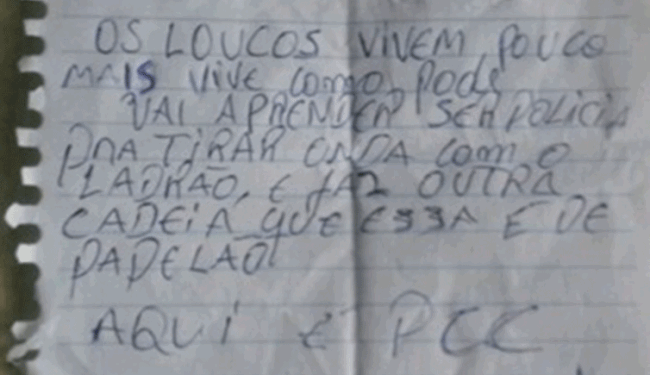 OS LOUCOS VIVEM POUCO
MAIS VIVE COMO PODE
VAI APRENDER SER POLICIA
PRA TIRAR ONDA COM O
LADRÃO, E FAZ OUTRA
CADEIA QUE ESSA E DE
PAPELÃO
AQUI E PCC